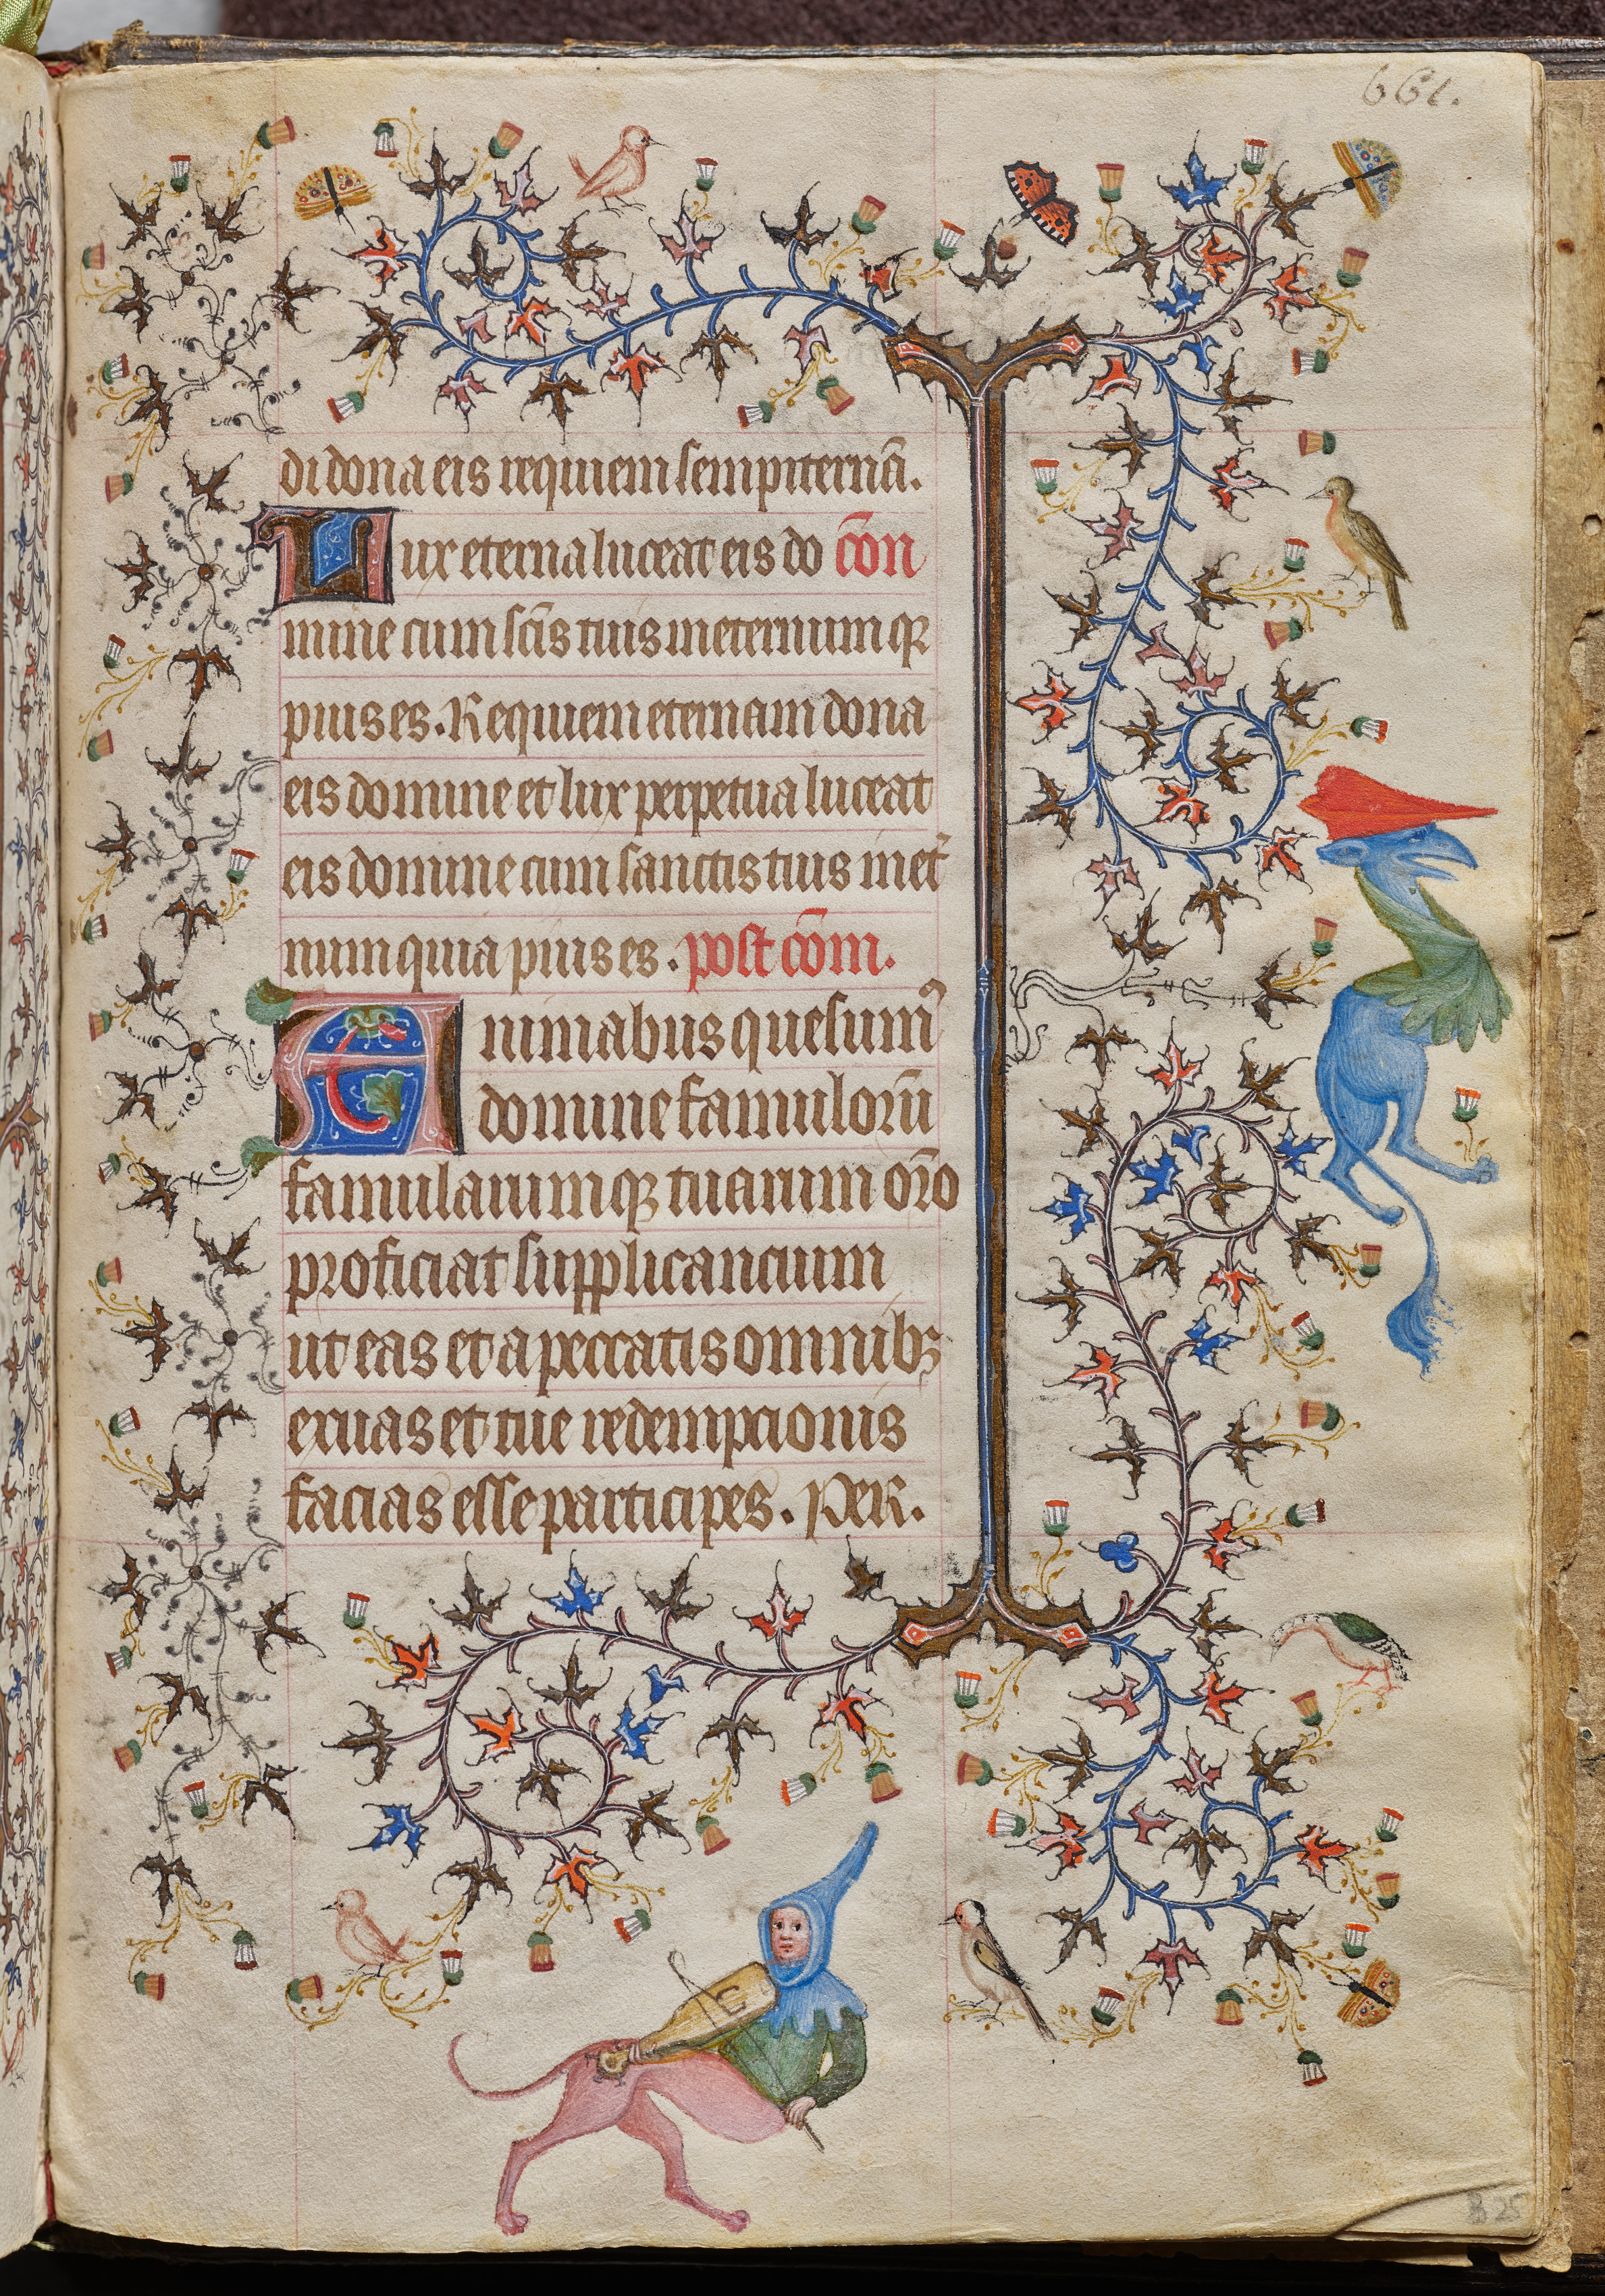 661.
di dona eis requiem sempiternā.
Lux eterna luceat eis do cōn
mine cum sc̄is tuis ineternum qꝫ
pius es. Requiem eternam dona
eis domine et lux perpetua luceat
eis domine cum sanctis tuis inet̄
num quia pius es. post cōm.
Animabus quesumꝰ
domine famulorū
famularumqꝫ tuarum or̄o
proficiat supplicancium
ut eas et a peccatis omnibꝫ
exuas et tue redempcionis
facias esse participes. PER.
B 25